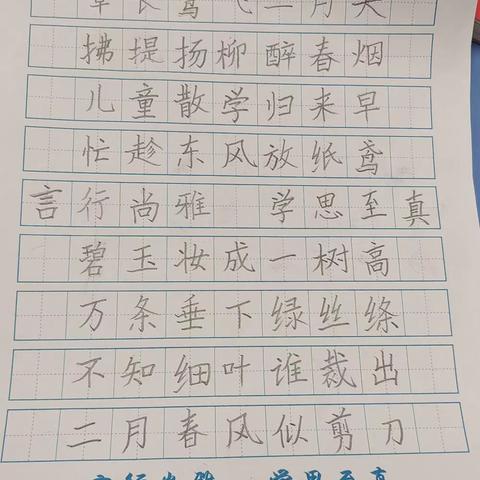 草长莺飞二月天
拂提扬柳醉春烟
儿童散学归来早
忙趁东风放纸鸢
言行尚雅 学思至真
碧玉妆成一树高
万条垂下绿丝绦
不知细叶谁裁出
二月春风似剪刀
言行尚雅 学思至真